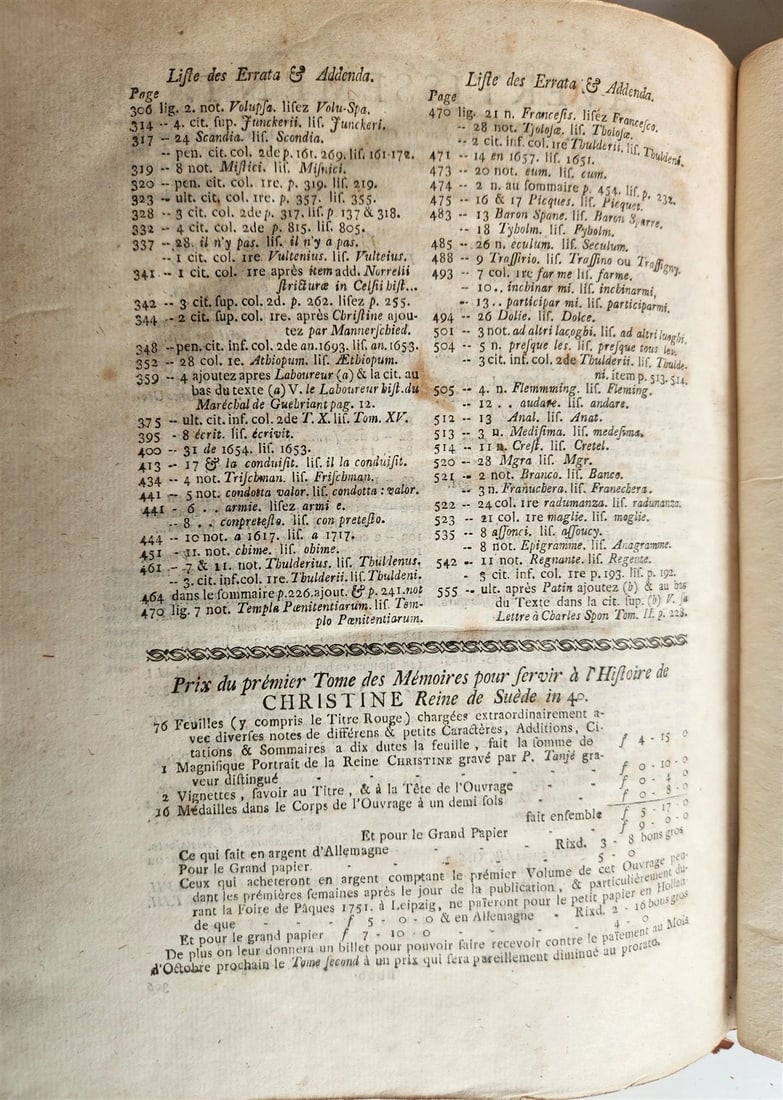 Liſte des Errata & Addenda.
Page
306 lig. 2. not. Volupſa. liſez Volu-Spa.
314 -- 4. cit. ſup. Junckerii. liſ. Junckeri.
317 -- 24 Scandia. liſ. Scondia.
-- pen. cit. col. 2de p. 161. 269. liſ. 161-172.
319 -- 8 not. Miſtici. liſ. Miſnici.
320 -- pen. cit. col. 1re. p. 319. liſ. 219.
323 -- ult. cit. col. 1re. p. 357. liſ. 355.
328 -- 3 cit. col. 2de p. 317. liſ. p. 137 & 318.
332 -- 4 cit. col. 2de p. 815. liſ. 805.
337 -- 28. il n'y pas. liſ. il n'y a pas.
-- 1 cit. col. 1re. Vultenius. liſ. Vulteius.
341 -- 1 cit. col. 1re après item add. Norrelii
ſtricturæ in Celſii hiſt...
342 -- 3 cit. ſup. col. 2d. p. 262. liſez p. 255.
344 -- 2 cit. ſup. col. 1re. après Chriſtine ajou-
tez par Mannerſchied.
348 -- pen. cit. inf. col. 2de an. 1693. liſ. an. 1653.
352 -- 28 col. 1e. Athbiopum. liſ. Æthbiopum.
359 -- 4 ajoutez apres Laboureur (a) & la cit. au
bas du texte (a) V. le Laboureur hiſt. du
Maréchal de Guebriant pag. 12.
375 -- ult. cit. inf. col. 2de T. X. liſ. Tom. XV.
395 - 8 écrit. liſ. écrivit.
400 -- 31 de 1654. liſ. 1653.
413 -- 17 & la conduiſit. liſ. il la conduiſit.
434 -- 4 not. Triſchman. liſ. Friſchman.
441 -- 5 not. condotta valor. liſ. condotta : valor.
441 - 6 . . armie. liſez armi e.
-- 8 . . conpreteſto. liſ. con preteſto.
444 -- 10 not. a 1617. liſ. a 1717.
451 -- 11. not. chime. liſ. ohime.
461 -- 7 & 11. not. Thulderius. liſ. Thuldenus.
-- 3. cit. inf. col. 1re. Thulderii. liſ. Thuldeni.
464 dans le ſommaire p. 226. ajout. & p. 241. not
470 lig. 7 not. Templa Pœnitentiarum. liſ. Tem-
plo Pœnitentiarum.
Liſte des Errata & Addenda.
Page
470 lig. 21 n. Franceſis. liſéz Franceſco.
-- 28 not. Tjoloſæ. liſ. Tholoſæ.
-- 2 cit. inf. col. 1re Thulderii. liſ. Thuldeni.
471 -- 14 en 1657. liſ. 1651.
473 -- 20 not. eum. liſ. cum.
474 -- 2 n. au ſommaire p. 454. liſ. p. 232.
475 -- 16 & 17 Picques. liſ. Picquet.
483 -- 13 Baron Spane. liſ. Baron Sparre.
-- 18 Tybolm. liſ. Fybolm.
485 -- 26 n. eculum. liſ. Seculum.
488 -- 9 Traſſirio. liſ. Traſſino ou Traſſigny.
493 -- 7 col. 1re far me liſ. farme.
-- 10 . . inchinar mi. liſ. inchinarmi,
-- 13 . . participar mi. liſ. participarmi.
494 -- 26 Dolie. liſ. Dolce.
501 -- 3 not. ad altri laçoghi. liſ. ad altri luoghi.
504 -- 5 n. preſque les. liſ. preſque tous les.
-- 3 cit. inf. col. 2de Thulderii. liſ. Thulde-
ni. item p. 513. 514.
505 -- 4. n. Flemmming. liſ. Fleming.
-- 12 . . audare. liſ. andare.
512 -- 13 Anal. liſ. Anat.
513 -- 3 n. Mediſima. liſ. medeſima.
514 -- 11 n. Creſt. liſ. Cretel.
520 -- 28 Mgra liſ. Mgr.
521 -- 2 not. Branco. liſ. Banco.
-- 3 n. Franuchera. liſ. Franechera.
522 -- 24 col. 1re radumanza. liſ. radunanza.
523 -- 21 col. 1re maglie. liſ. moglie.
535 -- 8 aſſonci. liſ. aſſoucy.
-- 8 not. Epigramme. liſ. Anagramme.
542 -- 11 not. Regnante. liſ. Regente.
- 3 cit. inf. col. 1re p. 193. liſ. p. 192.
555 -- ult. après Patin ajoutez (b) & au bas
du Texte dans la cit. ſup. (b) V. ſa
Lettre à Charles Spon Tom. II. p. 228.
Prix du prémier Tome des Mémoires pour ſervir à l'Hiſtoire de
CHRISTINE Reine de Suède in 4o.
76 Feuilles (y compris le Titre Rouge) chargées extraordinairement a-
vec diverſes notes de différens & petits Caractères, Additions, Ci-
tations & Sommaires a dix dutes la feuille, fait la ſomme de f 4 - 15 0
1 Magnifique Portrait de la Reine CHRISTINE gravé par P. Tanjé gra-
veur diſtingué - - - - f 0 - 10 - 0
2 Vignettes, ſavoir au Titre, & à la Tête de l'Ouvrage - f 0 - 4 0
16 Médailles dans le Corps de l'Ouvrage à un demi ſols - f 0 - 8 - 0
fait enſemble f 5 - 17 - 0
Et pour le Grand Papier - f 9 - 0 - 0
Ce qui fait en argent d'Allemagne - - - Rixd. 3 - 8 bons gros
Pour le Grand papier - - - - 5 - 0
Ceux qui acheteront en argent comptant le prémier Volume de cet Ouvrage pen-
dant les prémières ſemaines après le jour de la publication, & particulièrement du-
rant la Foire de Pâques 1751. à Leipzig, ne paîeront pour le petit papier en Hollan-
de que - - f 5 - 0 - 0 & en Allemagne - Rixd. 2 - 16 bons gros
Et pour le grand papier f 7 - 10 - 0 - - - 4 - 0
De plus on leur donnera un billet pour pouvoir faire recevoir contre le païement au Mois
d'Octobre prochain le Tome ſecond à un prix qui ſera pareillement diminué au prorato.